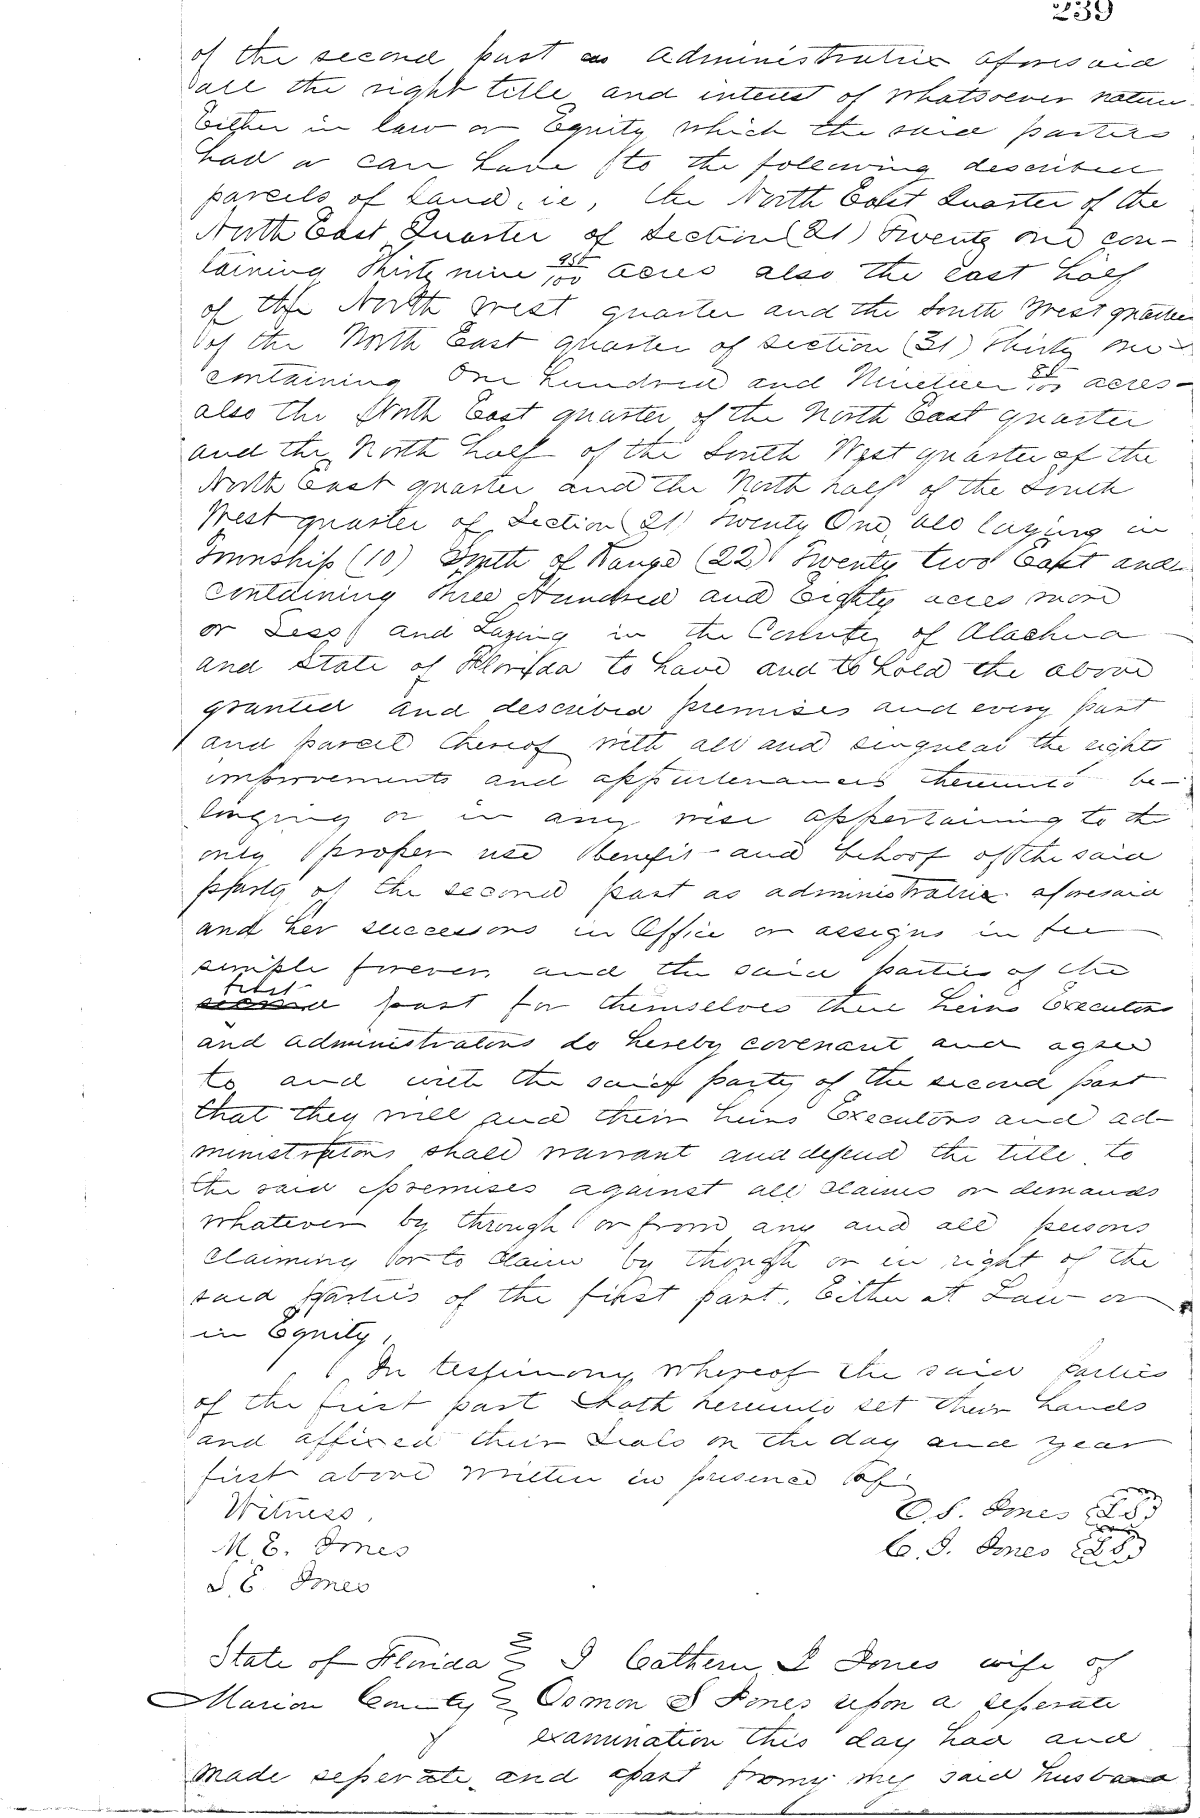 239
of the second part as administratrix aforesaid
all the right title and interest of whatsoever nature
Either in law or Equity which the said parties
had or can have to the following described
parcels of Land, ie, the North East Quarter of the
North East Quarter of Section (21) Twenty one con-
taining Thirty nine 95/100 acres also the east half
of the North West quarter and the South West quarter
of the North East quarter of section (31) Thirty one
containing One hundred and Nineteen 88/100 acres-
also the North East quarter of the North East quarter
and the North half of the South West quarter of the
North East quarter and the North half of the South
West quarter of Section (21) Twenty One, all laying in
Township (10) South of Range (22) Twenty two East and
containing Three Hundred and Eighty acres more
or Less and Laying in the County of Alachua
and State of Florida to have and to hold the above
granted and described premises and every part
and parcel thereof with all and singular the rights
improvements and appurtenances thereunto be-
longing or in any wise appertaining to the
only proper use benefit and behoof of the said
party of the second part as administratrix aforesaid
and her successors in Office or assigns in fee
simple forever and the said parties of the
first
second part for themselves there heirs Executors
and administrators do hereby covenant and agree
to and with the said party of the second part
that they will and their heirs Executors and ad-
ministrators shall warrant and defend the title to
the said premises against all claims or demands
whatever by through or from any and all persons
claiming or to claim by though or in right of the
said parties of the first part. Either at Law or
in Equity,
In testimony whereof the said parties
of the first part hath hereunto set their hands
and affixed their Seals on the day and year
first above written in presence of
Witness. O. S. Jones LS
M. E. Jones C. I. Jones LS
S. E. Jones
State of Florida I Cathern I Jones wife of
Marion County Osmon S Jones upon a seperate
examination this day had and
made seperate and apart from my said husband